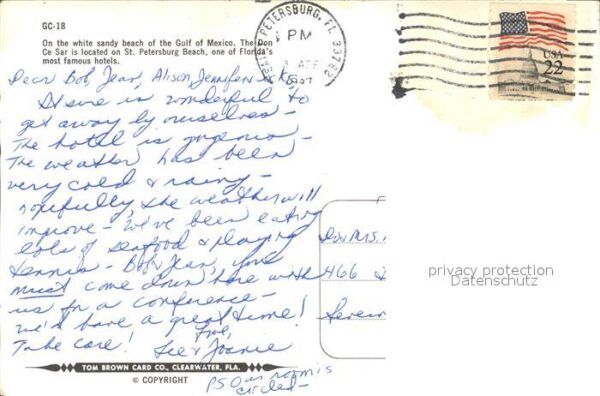 GC-18
On the white sandy beach of the Gulf of Mexico. The Don
Ce Sar is located on St. Petersburg Beach, one of Florida's
most famous hotels.
ST. PETERSBURG, FL 33732
PM
3 APR
1987
USA
22
Dear Bob, Jean, Alison, Jennifer &
It sure is wonderful to
get away by ourselves -
The hotel is gorgeous -
The weather has been
very cold & rainy -
hopefully, the weather will
improve - We've been eating
lots of seafood & playing
tennis - Bob & Jean, you
must come down here with
us for a conference -
we'd have a great time!
Take care! Love,
Lee & Joanie
PS Our room is
circled -
466
privacy protection
Datenschutz
TOM BROWN CARD CO., CLEARWATER, FLA.
© COPYRIGHT